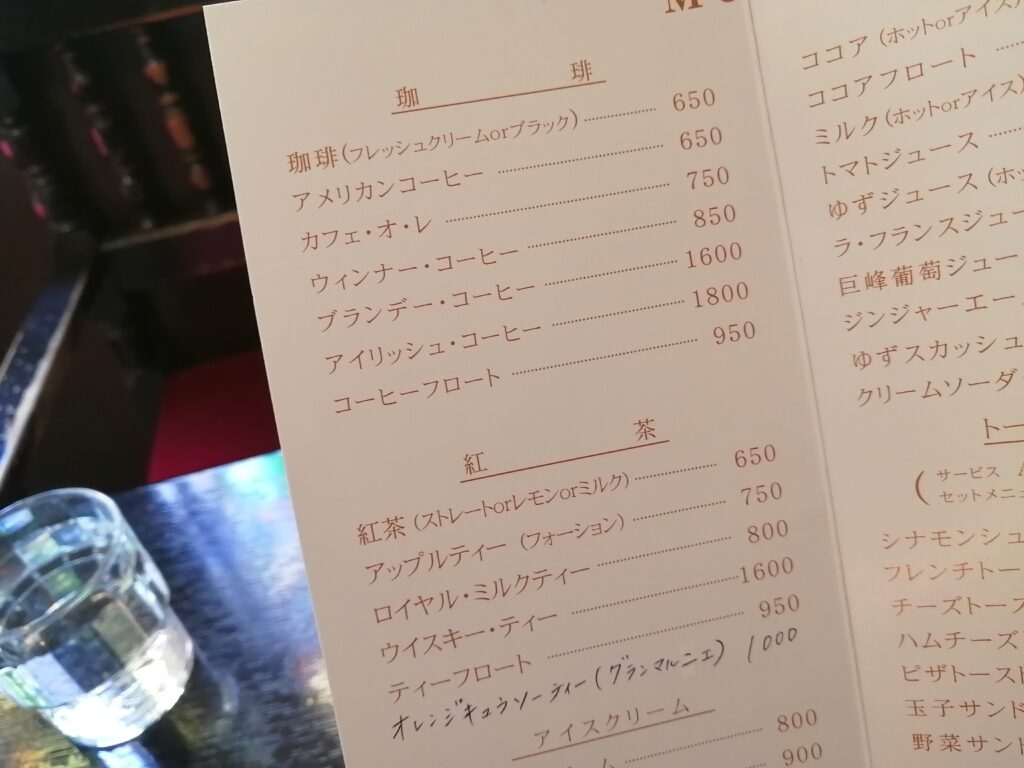 珈琲
珈琲(フレッシュクリームorブラック) 650
アメリカンコーヒー 650
カフェ・オ・レ 750
ウィンナー・コーヒー 850
ブランデー・コーヒー 1600
アイリッシュ・コーヒー 1800
コーヒーフロート 950
紅茶
紅茶(ストレートorレモンorミルク) 650
アップルティー(フォーション) 750
ロイヤル・ミルクティー 800
ウイスキー・ティー 1600
ティーフロート 950
オレンジキュラソーティー(グランマルニエ) 1000
アイスクリーム
800
900
ココア(ホットorアイス)
ココアフロート
ミルク(ホットorアイス)
トマトジュース
ゆずジュース(ホッ
ラ・フランスジュー
巨峰葡萄ジュー
ジンジャーエー
ゆずスカッシュ
クリームソーダ
トー
(サービス
セットメニュ
シナモンシュ
フレンチトー
チーズトース
ハムチーズ
ピザトースト
玉子サンド
野菜サンド